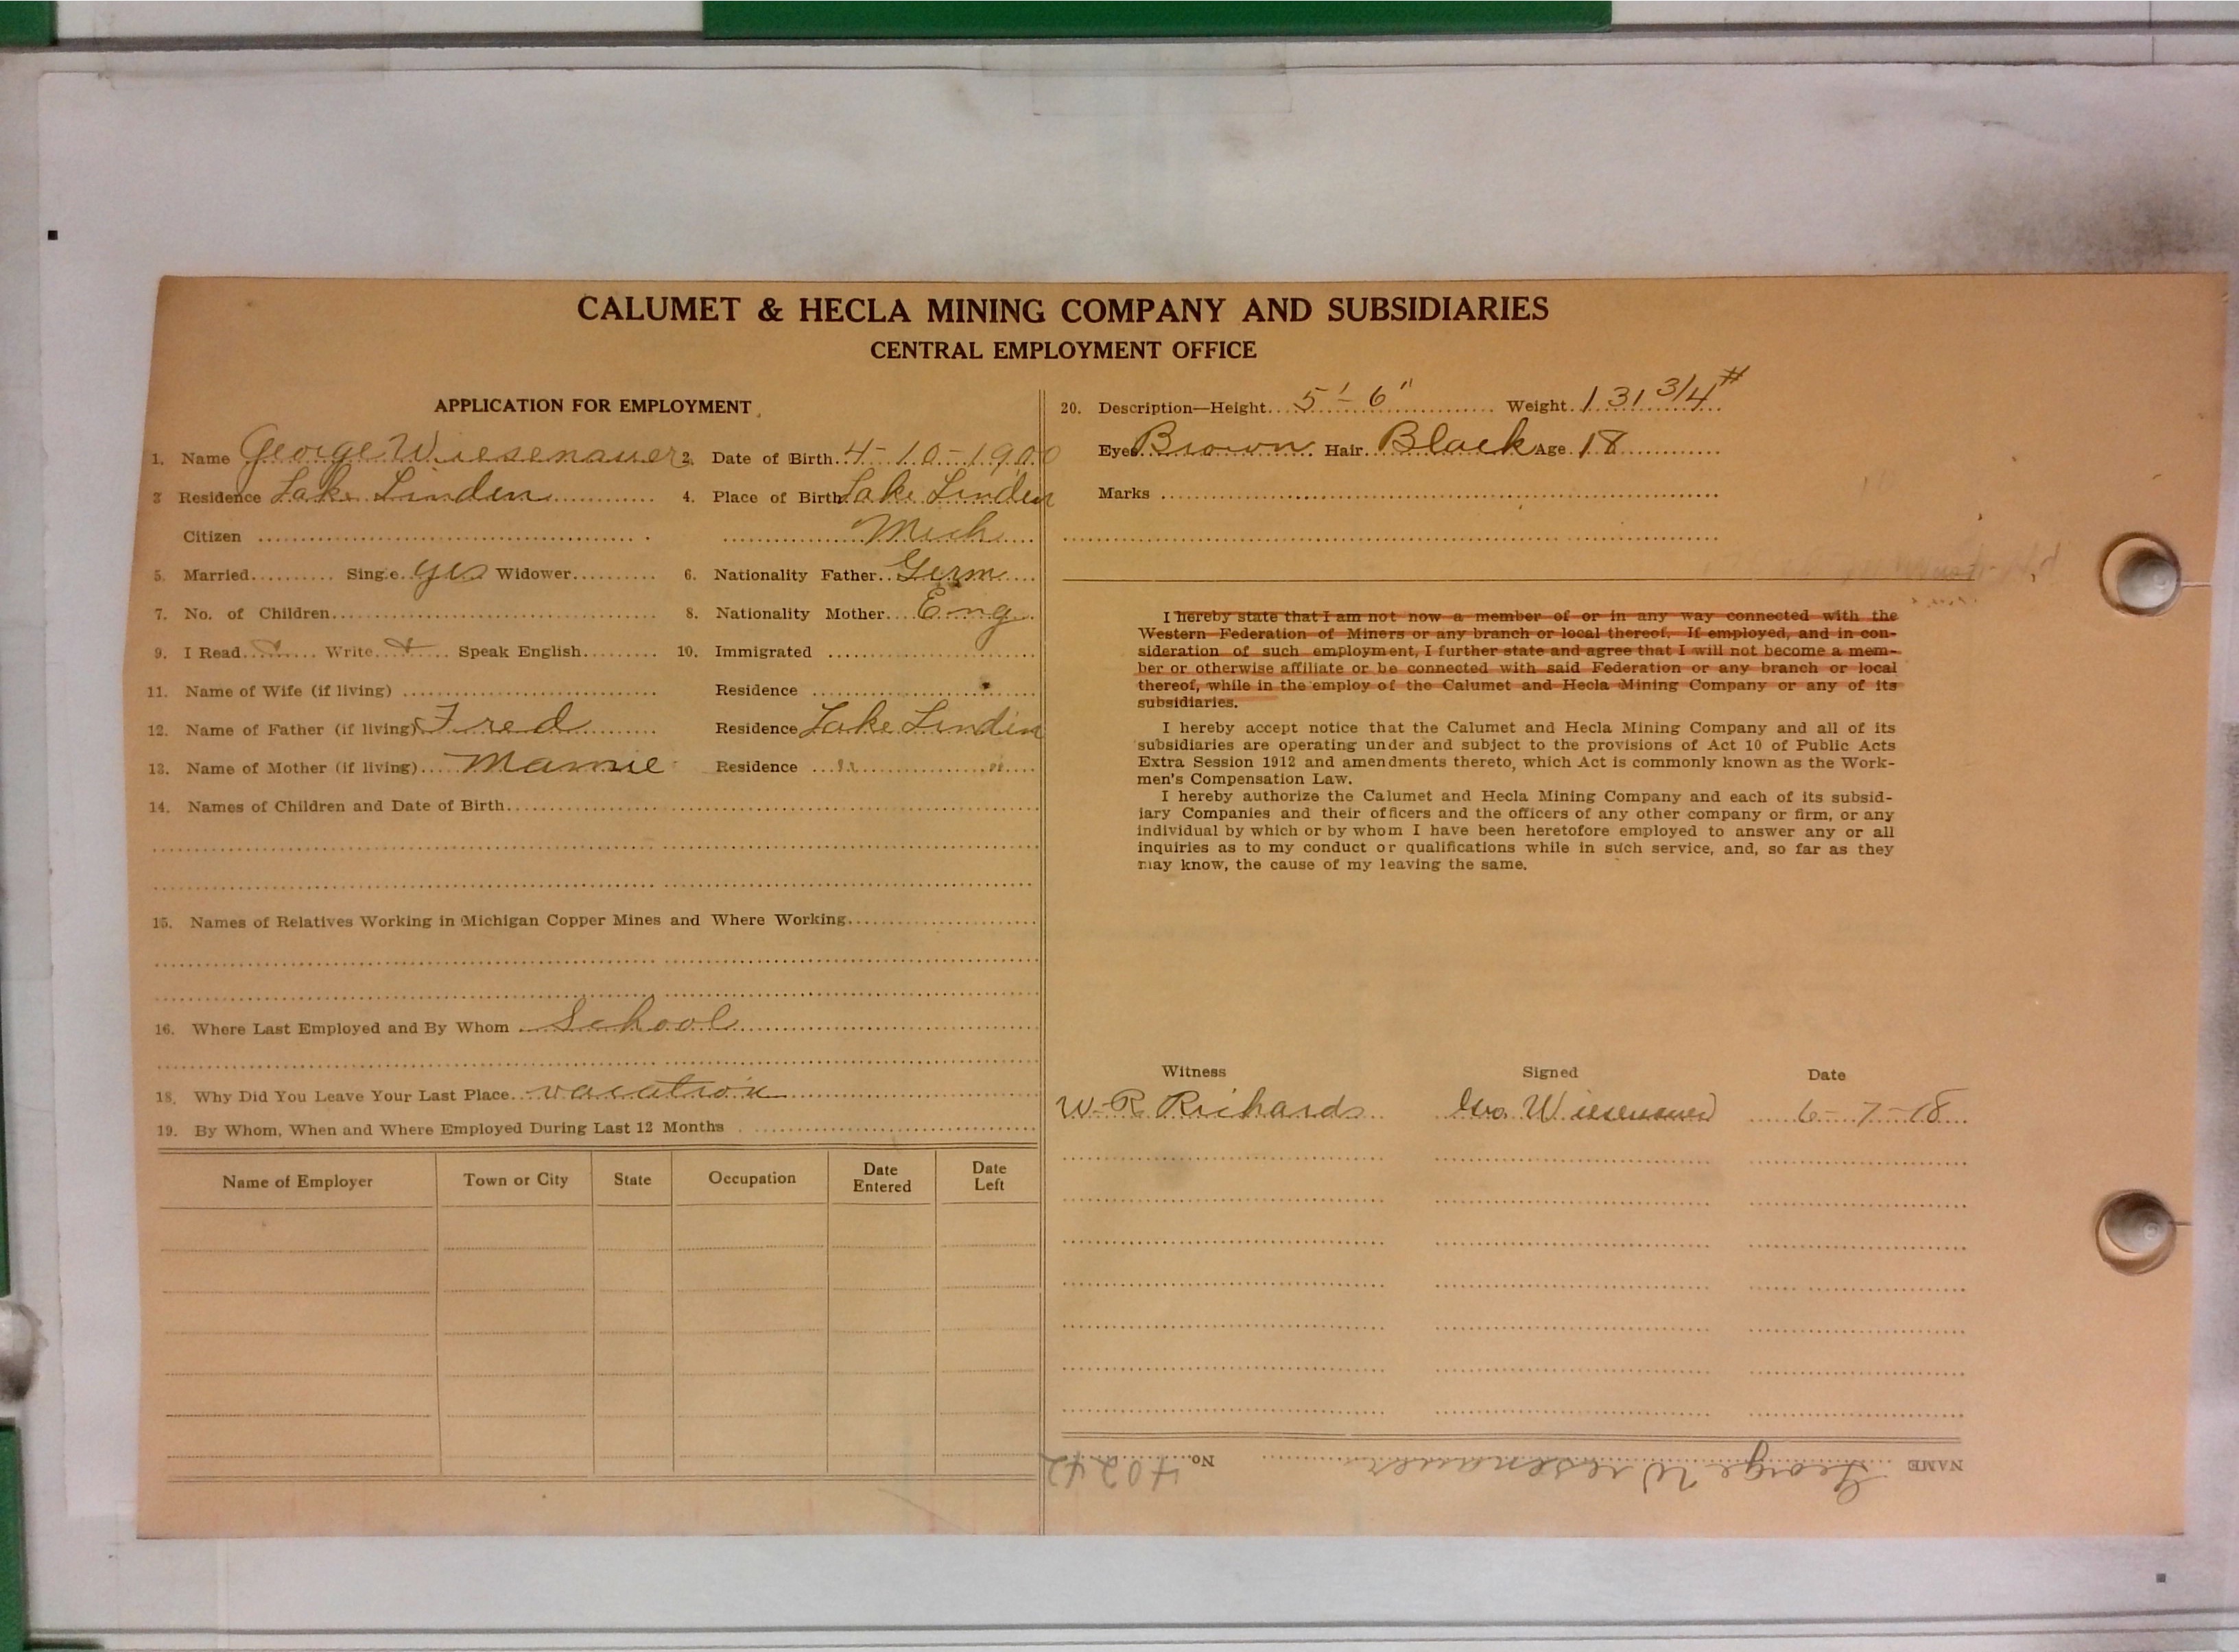 CALUMET & HECLA MINING COMPANY AND SUBSIDIARIES
CENTRAL EMPLOYMENT OFFICE
APPLICATION FOR EMPLOYMENT
1. Name George Wiesenauer 2. Date of Birth 4-10-1900
3 Residence Lake Linden 4. Place of Birth Lake Linden
Citizen Mich
5. Married Single yes Widower 6. Nationality Father Germ
7. No. of Children 8. Nationality Mother Eng
9. I Read Write Speak English 10. Immigrated
11. Name of Wife (if living) Residence
12. Name of Father (if living) Fred Residence Lake Linden
13. Name of Mother (if living) Mamie Residence " "
14. Names of Children and Date of Birth
15. Names of Relatives Working in Michigan Copper Mines and Where Working
16. Where Last Employed and By Whom School
18. Why Did You Leave Your Last Place vacation
19. By Whom, When and Where Employed During Last 12 Months
Name of Employer Town or City State Occupation Date Entered Date Left
20. Description—Height 5'-6" Weight 131 3/4 #
Eyes Brown Hair Black Age 18
Marks
I hereby state that I am not now a member of or in any way connected with the
Western Federation of Miners or any branch or local thereof. If employed, and in con-
sideration of such employment, I further state and agree that I will not become a mem-
ber or otherwise affiliate or be connected with said Federation or any branch or local
thereof, while in the employ of the Calumet and Hecla Mining Company or any of its
subsidiaries.
I hereby accept notice that the Calumet and Hecla Mining Company and all of its
subsidiaries are operating under and subject to the provisions of Act 10 of Public Acts
Extra Session 1912 and amendments thereto, which Act is commonly known as the Work-
men's Compensation Law.
I hereby authorize the Calumet and Hecla Mining Company and each of its subsid-
iary Companies and their officers and the officers of any other company or firm, or any
individual by which or by whom I have been heretofore employed to answer any or all
inquiries as to my conduct or qualifications while in such service, and, so far as they
may know, the cause of my leaving the same.
Witness Signed Date
W-R Richards Geo Wiesenauer 6-7-18
NAME George Wiesenauer No. 40242